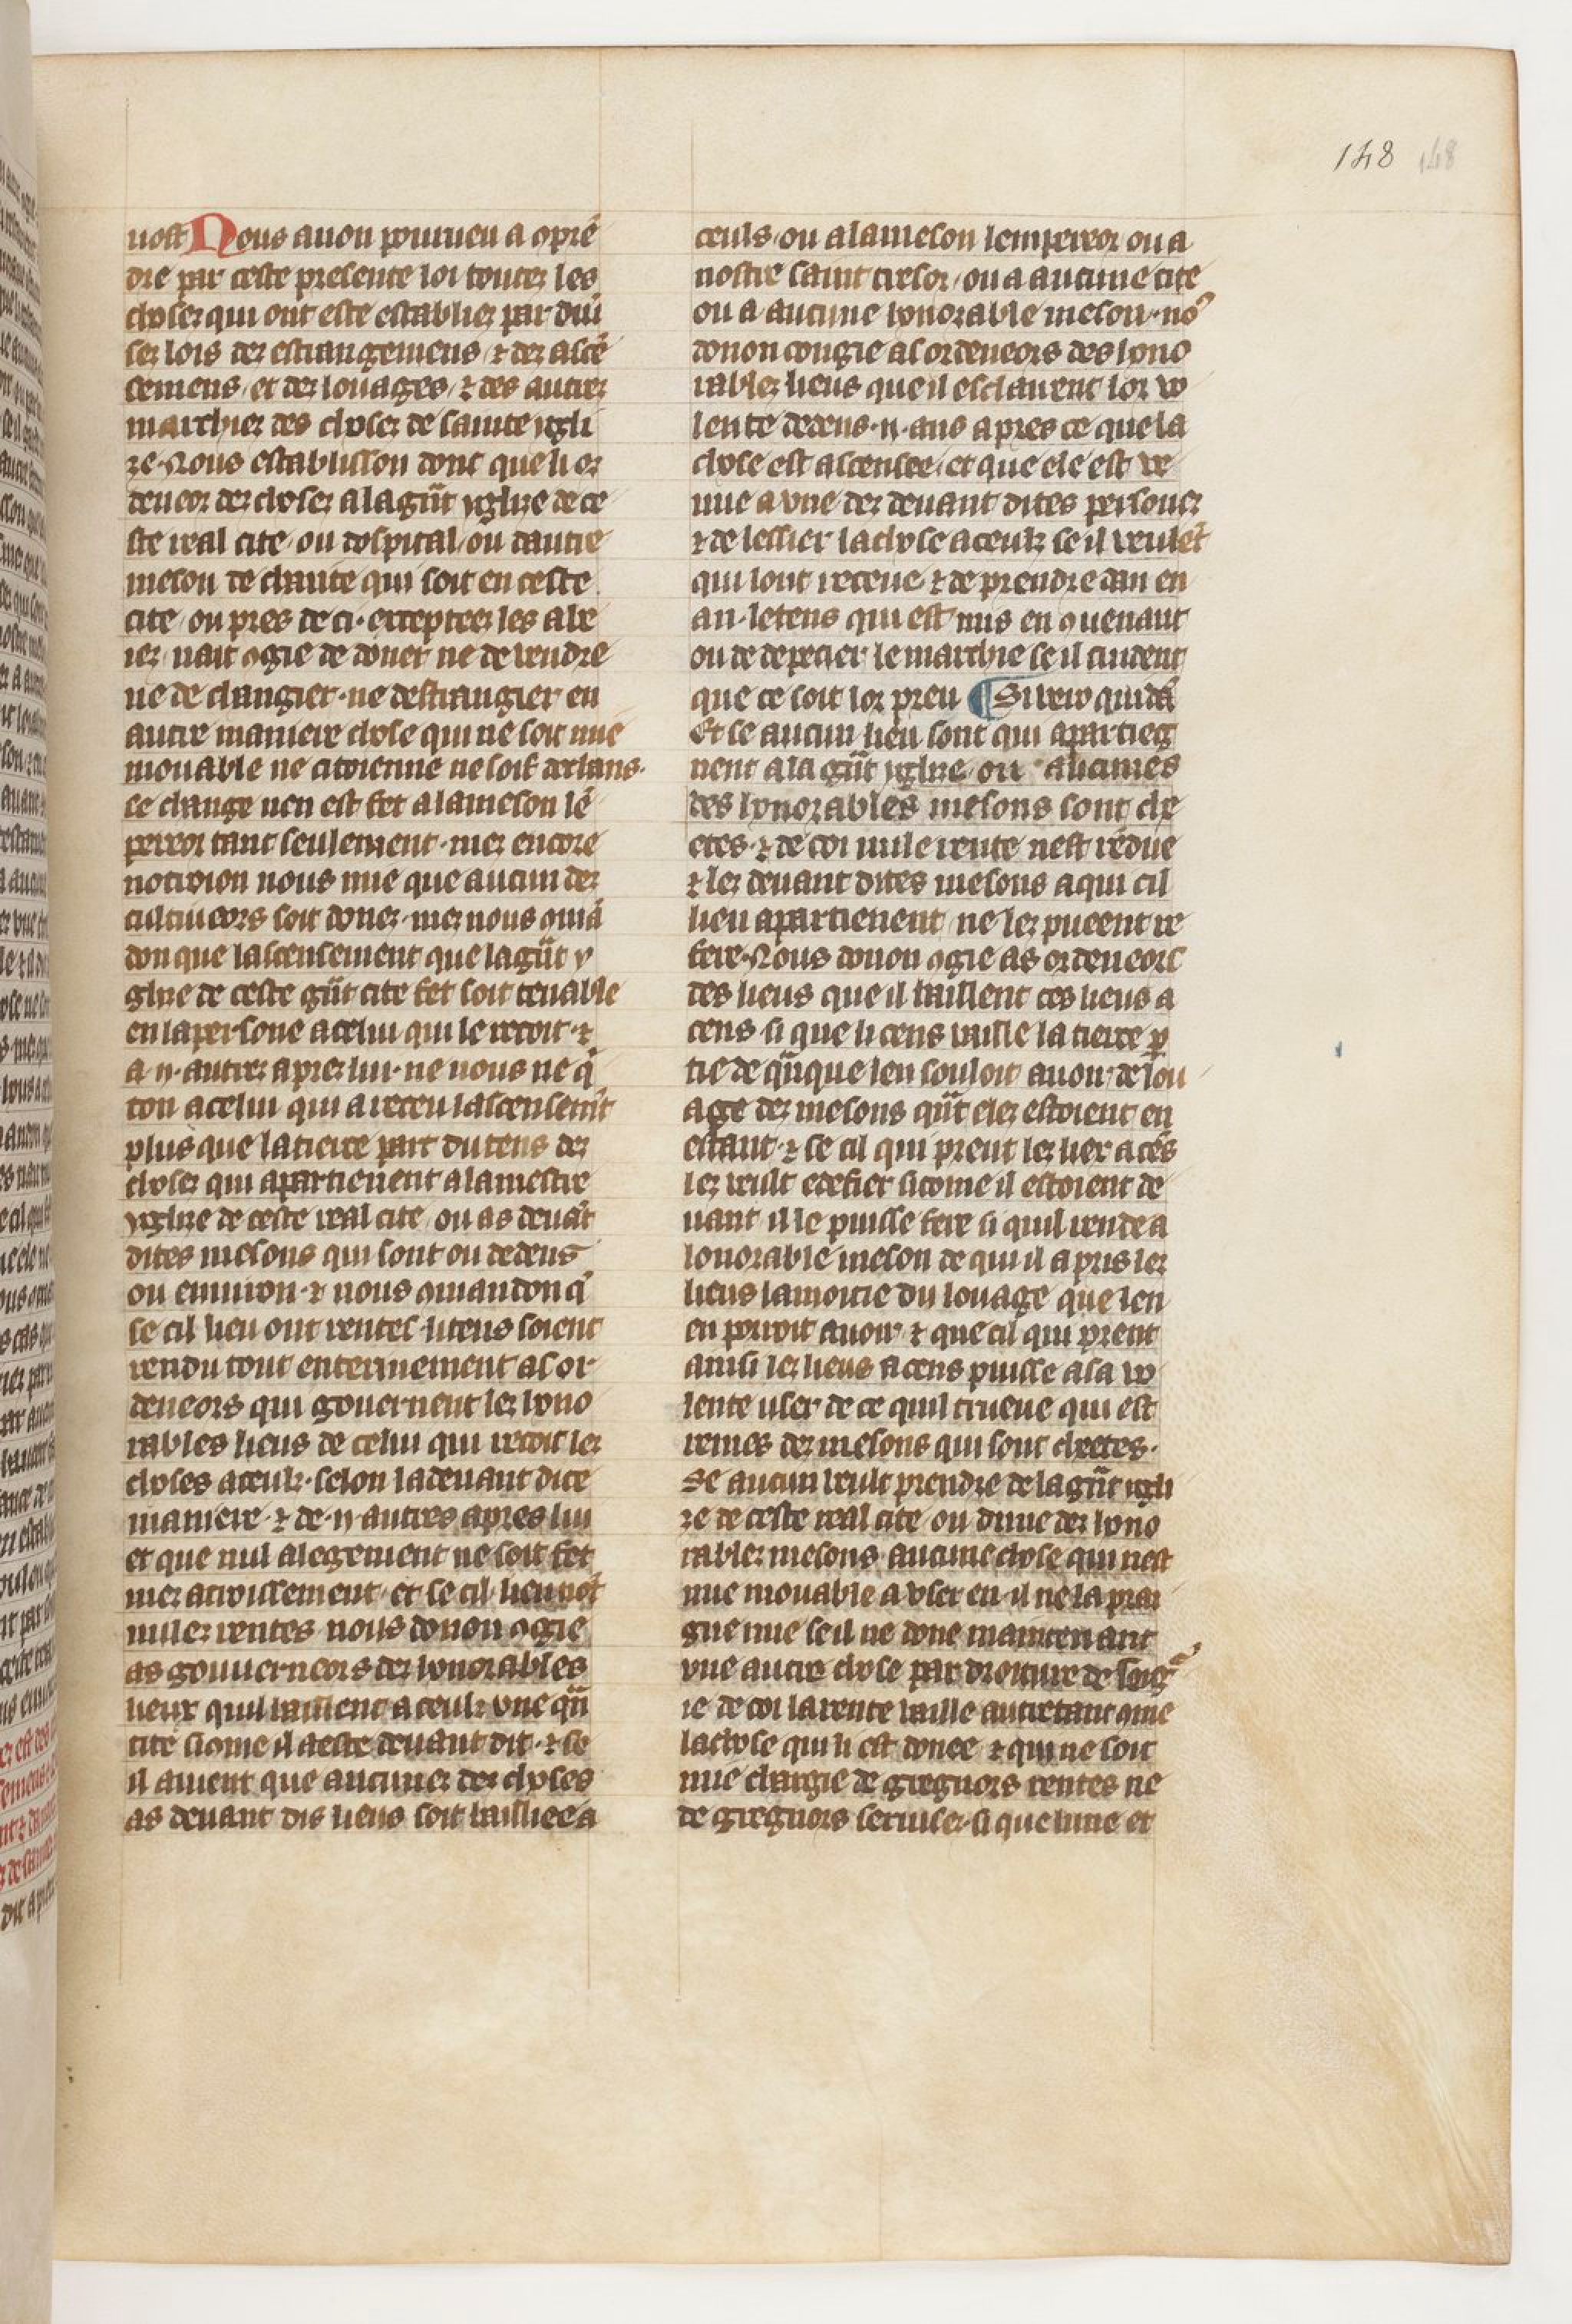 148 148
uost Nous auon pourueu a ꝯpre᷑
dre par ceste presente loi toutez les
chosez qui ont este establiez par diu᷑
sez lois dez estrangemens ⁊ dez asce᷑
semens et dez louages ⁊ des autrez
marchiez des chosez de sainte ygli
ze. Nous establisson dont que li or
deneor dez chosez a la gn̄t yglize de ce
ste real cite ou dospital ou dautre
meson de charite qui soit en ceste
cite ou pres de ci. exceptees les ale
iez nait ꝯgie de doner ne de vendre
ne de changier. ne destrangier en
autre maniere chose qui ne soit mie
mouable ne citoienne ne soit dechans.
se change nen est fet a la meson le᷑
pereor tant seulement. mez encore
notroion nous mie que aucun dez
cultiueors soit donez. mez nous ꝯmā
don que lascensement que la gn̄t y
glize de ceste gn̄t cite fet soit tenable
en la persone a celui qui le recoit. ⁊
a .ii. autrez aprez lui. ne nous ne q̄
ton a celui qui a receu lascensem̄t
plus que la tierce part du cens dez
chosez qui apartienent a la mestre
yglize de ceste real cite ou as deuāt
dites mesons qui sont ou dedens
ou enuiron. ⁊ nous ꝯmandon q̄
se cil lieu ont rentes. li cens soient
rendu tout enterinement as or
deneors qui gouernent lez hono
rables lieus de celui qui recoit lez
choses a ceulz. selon la deuant dite
maniere. ⁊ de .ii. autres apres lui
et que nul alegement ne soit fet
mez acroissement. et se cil lieu nōt
nulez rentes nous donon ꝯgie
as gouuerneors dez honorables
lieux quil baillent a ceulz vne qn̄
tite sicome il a este deuant dit. ⁊ se
il auient que aucunez dez choses
as deuant dis lieus soit bailliee a
ceuls ou a la meson lempereor ou a
nostre saint tresor ou a aucune cite
ou a aucune honorable meson. no᷑
donon congie as ordeneors des hono
rablez lieus que il esclairent lor vo
lente dedens .ii. ans apres ce que la
chose est ascensee. et que ele est ve
nue a vne dez deuant dites personez
⁊ de lessier la chose a ceulz se il veulēt
qui lont receue ⁊ de prendre dan en
an. le cens qui est mis en ꝯuenant
ou de depecier le marchie se il cuident
que ce soit lor preu ¶ Si vero quidā
Et se aucun lieu sont qui apartieg
nent a la gn̄t yglize ou aucunes
des honorables mesons sont che
etes. ⁊ de coi nule rente nest redue
⁊ lez deuant dites mesons a qui cil
lieu apartienent ne lez pueent re
fere. Nous donon ꝯgie as ordeneors
des lieus que il baillent ces lieus a
cens si que li cens vaille la tierce ꝑ
tie de qn̄que len souloit auoir de lou
age dez mesons qn̄t elez estoient en
estant. ⁊ se cil qui prent lez liex a cēs
lez veult edefier sicome il estoient de
uant il le puisse fere si quil rende a
lonorable meson de qui il a pris lez
lieus la moitie du louage que len
en porroit auoir ⁊ que cil qui prent
ainsi lez lieus a cens puisse a la vo
lente vser de ce quil trueue qui est
remes dez mesons qui sont cheetes.
Se aucun veult prendre de la gn̄t ygli
ze de ceste real cite ou dune dez hono
rablez mesons aucune chose qui nest
mie mouable a vser en. il ne la prai
gne mie se il ne done maintenant
vne autre chose par droiture de seig᷑
ie de coi la rente vaille autretant ꝯme
la chose qui li est donee ⁊ qui ne soit
mie chargie de gregnors rentes ne
de gregnors seruisez. si que lune et